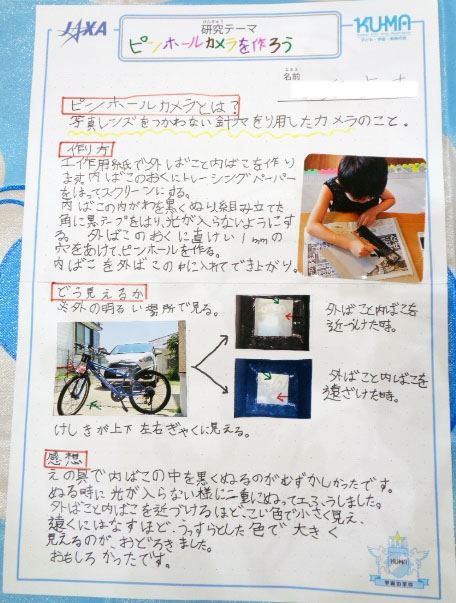 JAXA
けんきゅう
研究テーマ
KUMA
ピンホールカメラを作ろう
なまえ
名前
ピンホールカメラとは?
写真レンズをつかわない針穴を利用したカメラのこと。
作り方
工作用紙で外ばこと内ばこを作り
ます。内ばこのおくにトレーシングペーパー
をはってスクリーンにする。
内ばこの内がわを黒くぬり組み立てた
角に黒テープをはり、光が入らないようにす
る。外ばこのおくに直けい1mmの
穴をあけて、ピンホールを作る。
内ばこを外ばこの中に入れてでき上がり。
どう見えるか
外の明るい場所で見る。
外ばこと内ばこを
近づけた時。
外ばこと内ばこを
遠ざけた時。
けしきが上下左右ぎゃくに見える。
感想
えの具で内ばこの中を黒くぬるのがむずかしかったです。
ぬる時に光が入らない様に二重にぬって工ふうしました。
外ばこと内ばこを近づけるほど、こい色で小さく見え、
遠くにはなすほど、うっすらとした色で大きく
見えるのが、おどろきました。
おもしろかったです。
KUMA
宇宙の学校